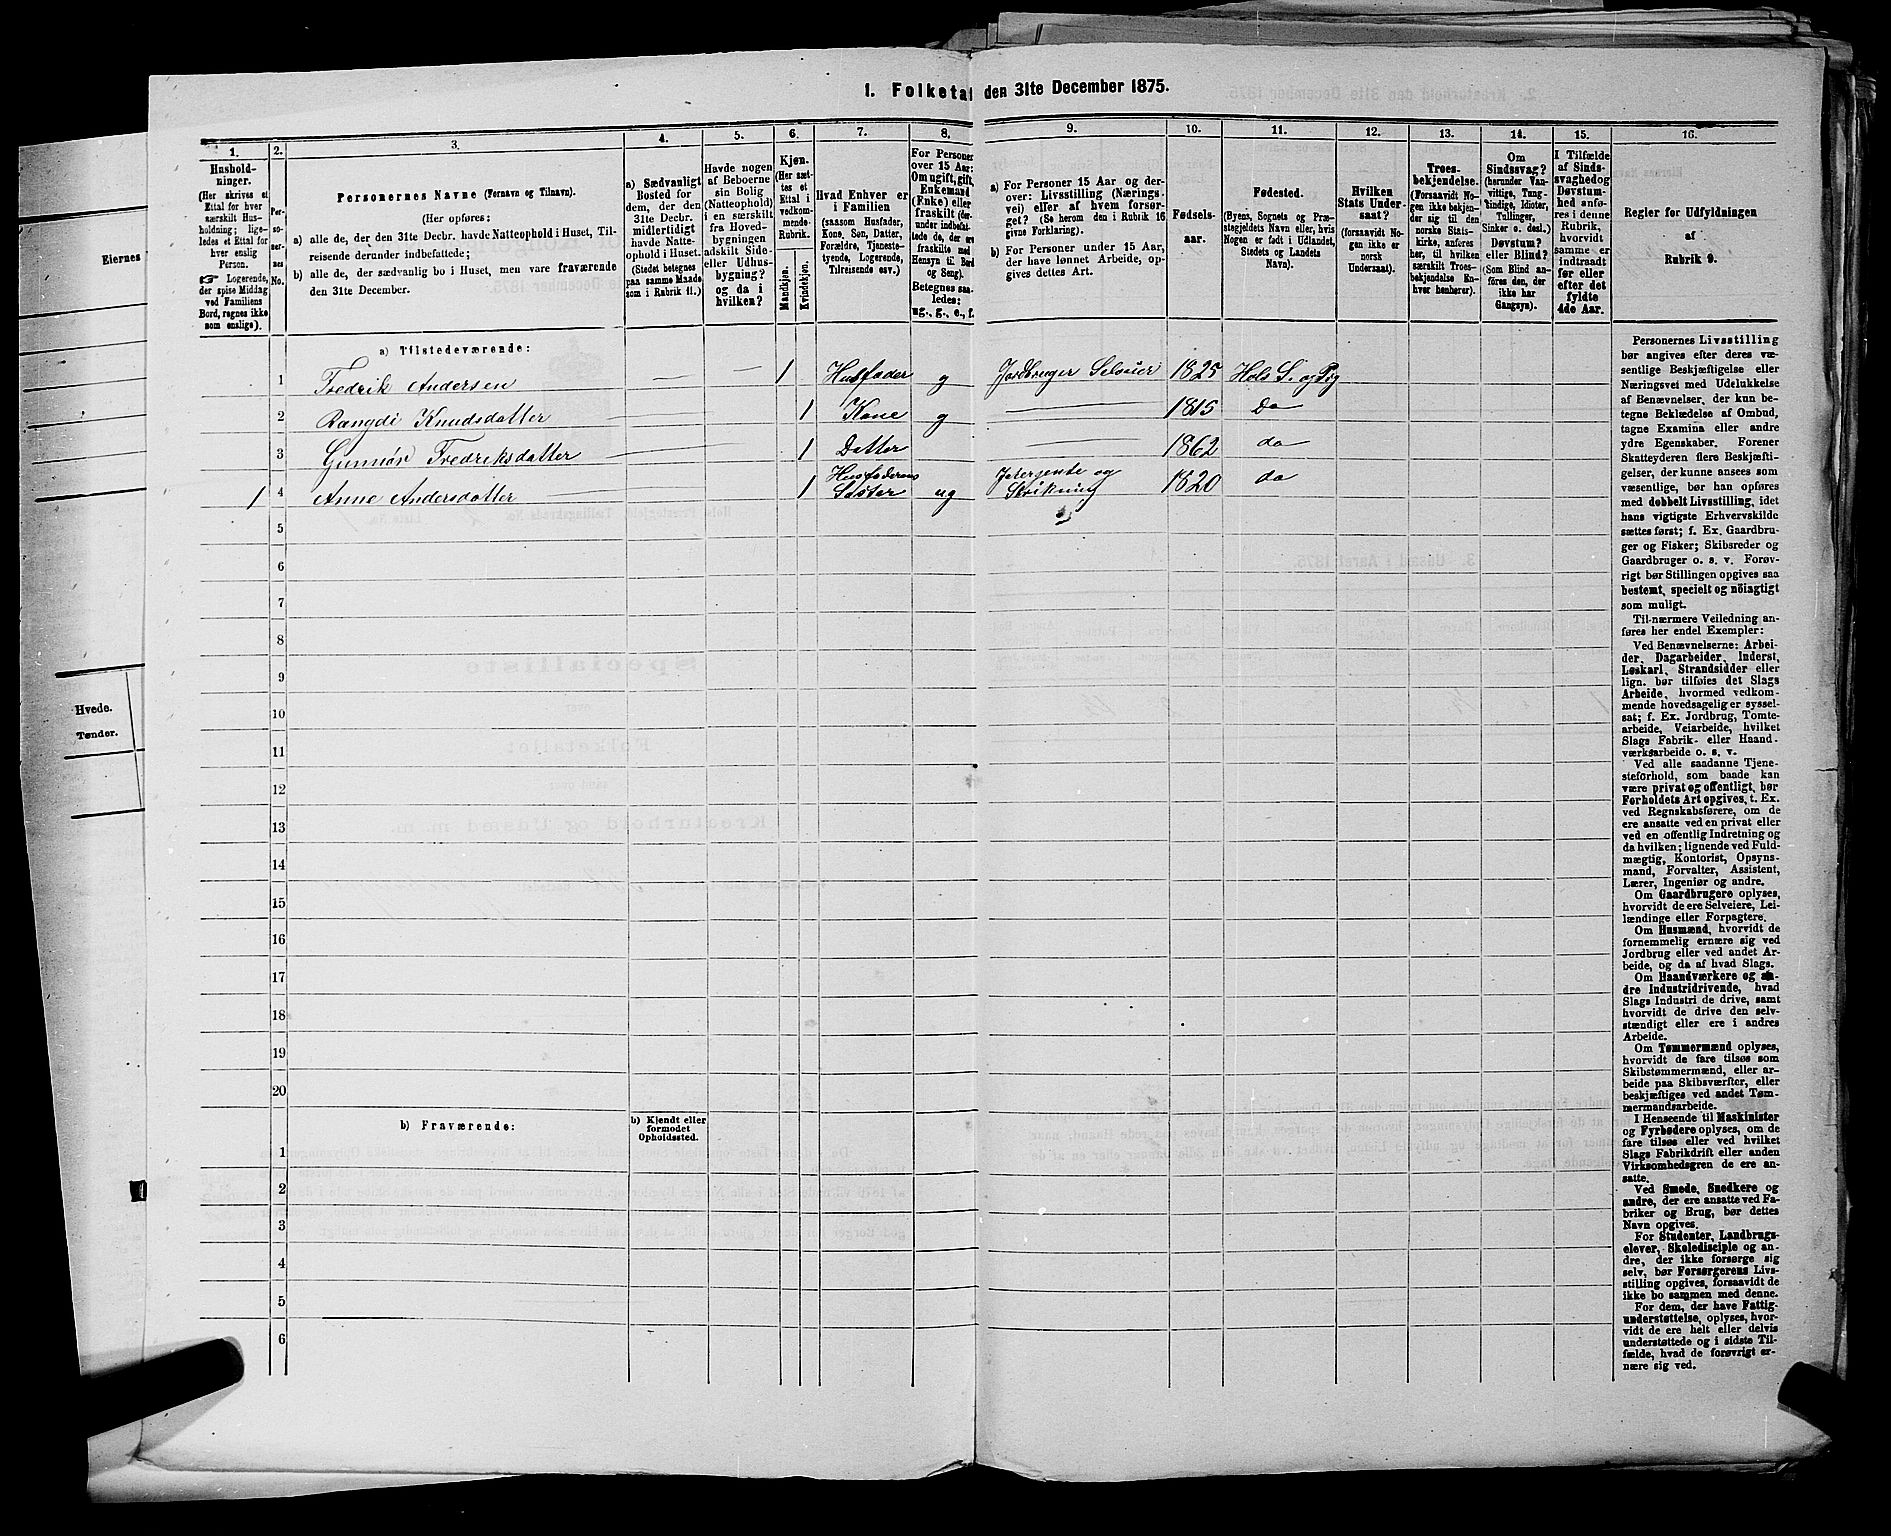 1. Folketal den 31te December 1875.
1.
2.
3.
4.
5.
6.
7.
8.
9.
10.
11.
12.
13.
14.
15.
16.
Eiernes
Hvede.
Tønder.
Husholdninger.
(Her skrives et
Ettal for hver
særskilt Husholdning; ligeledes et Ettal for
hver enslig
Person.
☞ Logerende,
der spise Middag
ved Familiens
Bord, regnes ikke
som enslige).
Personernes No.
Personernes Navne (Fornavn og Tilnavn).
(Her opføres:
a) alle de, der den 31te Decbr. havde Natteophold i Huset, Tilreisende derunder indbefattede;
b) alle de, der sædvanlig bo i Huset, men vare fraværende
den 31te December.
a) Sædvanligt
Bosted for
dem, der den
31te Decbr.
midlertidigt
havde Natteophold i Huset.
(Stedet betegnes
paa samme Maade
som i Rubrik 11.)
Havde nogen
af Beboerne
sin Bolig
(Natteophold)
i en særskilt
fra Hovedbygningen
adskilt Side
eller Udhusbygning?
og da i
hvilken?
Kjøn.
(Her sættes et
Ettal i
vedkommende
Rubrik.
Mandkjøn.
Kvindekjøn.
Hvad Enhver er
i Familien
(saasom Husfader,
Kone, Søn, Datter,
Forældre, Tjenestetyende, Logerende,
Tilreisende osv.)
For Personer
over 15 Aar:
Om ugift, gift,
Enkemand
(Enke) eller
fraskilt (derunder indbefattede de, der ere
fraskilte med
Hensyn til Bord
og Seng).
Betegnes saaledes:
ug., g., e., f.
a) For Personer 15 Aar og derover: Livsstilling (Næringsvei) eller af hvem forsørget? (Se herom den i Rubrik 16
givne Forklaring).
b) For Personer under 15 Aar,
der have lønnet Arbeide, opgives dettes Art.
Fødselsaar.
Fødested.
(Byens, Sognets og Præstegjeldets Navn eller, hvis
Nogen er født i Udlandet,
Stedets og Landets
Navn).
Hvilken
Stats Undersaat?
(forsaavidt Nogen ikke er
norsk
Undersaat).
Troesbekjendelse.
(Forsaavidt Nogen ikke bekjender sig til den
norske Statskirke, anføres
her, til hvilken
særskilt Troesbekjendelse Enhver henhører).
Om
Sindssvag?
(herunder Vanvittige, Idioter,
Tullinger,
Sinker o. desl.)
Døvstum?
eller Blind?
(Som Blind anføres den, der
ikke har
Gangsyn).
I Tilfælde
af Sindssvaghed og
Døvstumhed anføres i denne
Rubrik,
hvorvidt
samme er
indtraadt
før eller
efter det
fyldte
4de Aar.
Regler for Udfyldningen
af
Rubrik 9.
a) Tilstedeværende:
1 Fredrik Andersen — — 1 Husfader g Jordbruger Selveier 1825 Hols S. og Pg
2 Rangdi Knudsdatter — 1 Kone g — 1815 Do
3 Gunnor Fredriksdatter — 1 Datter — 1862 do
1 4 Anne Andersdatter — 1 Husfaderens Søster ug 1820 do
5
6
7
8
9
10
11
12
13
14
15
16
17
18
19
20
b) Fraværende:
b) Kjendt eller
formodet
Opholdssted.
1
2
3
4
5
6
Personernes Livsstilling
bør angives efter deres væsentlige Beskjæftigelse eller
Næringsvei med Udelukkelse
af Benævnelser, der kun betegne Beklædelse af Ombud,
tagne Examina eller andre
ydre Egenskaber. Forener
Skatteyderen flere Beskjæftigelser, der kunne ansees som
væsentlige, bør han opføres
med dobbelt Livsstilling, idet
hans vigtigste Erhvervskilde
sættes først; f. Ex. Gaardbruger og Fisker; Skibsreder og
Gaardbruger o. s. v. Forøvrigt bør Stillingen opgives saa
bestemt, specielt og nöiagtigt
som muligt.
Til nærmere Veiledning anføres her endel Exempler:
Ved Benævnelserne: Arbeider, Dagarbeider, Inderst,
Løskarl, Strandsidder eller
lign. bør tilføies det Slags
Arbeide, hvormed vedkommende hovedsagelig er sysselsat; f. Ex. Jordbrug, Tomtearbeide, Veiarbeide, hvilket
Slags Fabrik- eller Haandværksarbeide o. s. v.
Ved alle saadanne Tjenesteforhold, som baade kan
være privat og offentligt, bør
Forholdets Art opgives, t. Ex.
ved Regnskabsførere, om de
ere ansatte ved en privat eller
ved en offentlig Indretning og
da hvilken; lignende ved Fuldmægtig, Kontorist, Opsynsmand, Forvalter, Assistent,
Lærer, Ingeniør og andre.
Om Gaardbrugere oplyses,
hvorvidt de ere Selveiere, Leilændinge eller Forpagtere.
Om Husmænd, hvorvidt de
fornemmelig ernære sig ved
Jordbrug eller ved andet Arbeide, og da af hvad Slags.
Om Haandværkere og andre Industridrivende, hvad
Slags Industri de drive, samt
hvorvidt de drive den selvstændigt eller ere i andres
Arbeide.
Om Tømmermænd oplyses,
hvorvidt de fare tilsøs som
Skibstømmermænd, eller arbeide paa Skibsværfter, eller
beskjæftiges ved andet Tømmermandsarbeide.
I Henseende til Maskinister
og Fyrbødere oplyses, om de
fare tilsøs eller ved hvilket
Slags Fabrikdrift eller anden
Virksomhedsgren de ere ansatte.
Ved Smede, Snedkere og
andre, der ere ansatte ved Fabriker og Brug, bør dettes
Navn opgives.
For Studenter, Landbrugselever, Skoledisciple og andre, der ikke forsørge sig
selv, bør Forsørgerens Livsstilling opgives, forsaavidt de
ikke bo sammen med denne.
For dem, der have Fattigunderstøttelse, oplyses, hvorvidt de ere helt eller delvis
understøttede og i sidste Tilfælde, hvad de forøvrigt ernære sig ved.